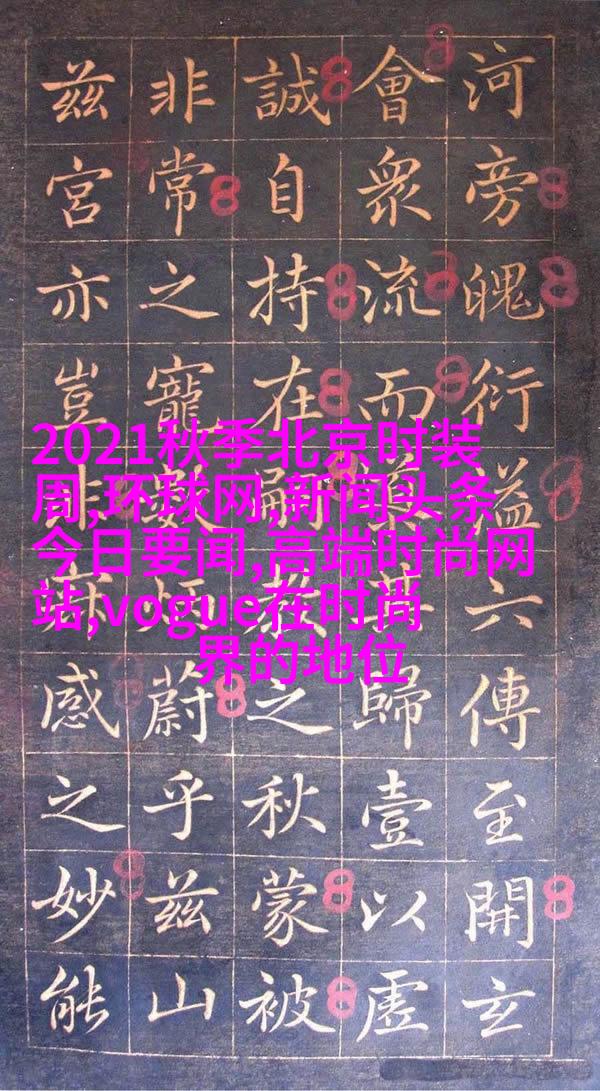 河旁魄衍溢六傳至開玄
會衆流而其歸壹以虛
誠自持在嗣之秋蒙被
非常之寵數蔚乎兹山
兹宮亦豈非感之妙能
2021秋季北京时装
周,环球网,新闻头条
今日要闻,高端时尚网
站,vogue在时尚
界的地位